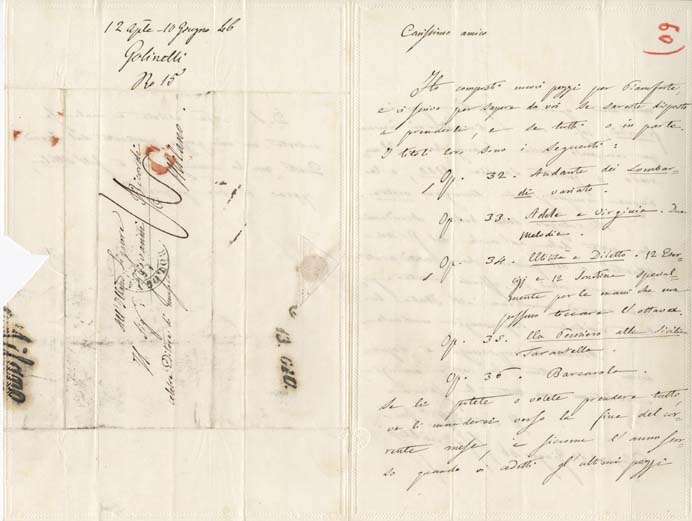 12 Aple - 10 Giugno 46
Golinelli
Ro 15
Sigr Giovanni Ricordi
Milano.
Milano
13. GIU
60)
Carissimo amico
Ho composti nuovi pezzi per Pianoforte,
e vi scrivo per sapere da voi se sareste disposto
a prenderli, e se tutti o in parte.
I titoli loro sono i seguenti:
Op. 32. Andante dei Lombar-
di variato.
Op. 33. Adele e Virginia. Due
Melodie.
Op. 34. Utilità e Diletto. 12 Eser-
cizj e 12 special-
mente per le mani che non
possono toccare l'ottava.
Op. 35. Un Pensiero alla Sicilia
Tarantella
Op. 36. Barcarola.
Se li potete o volete prendere tutti,
ve li manderei verso la fine del cor-
rente mese, e siccome l'anno scor-
so quando vi cedetti gl'ultimi pezzi